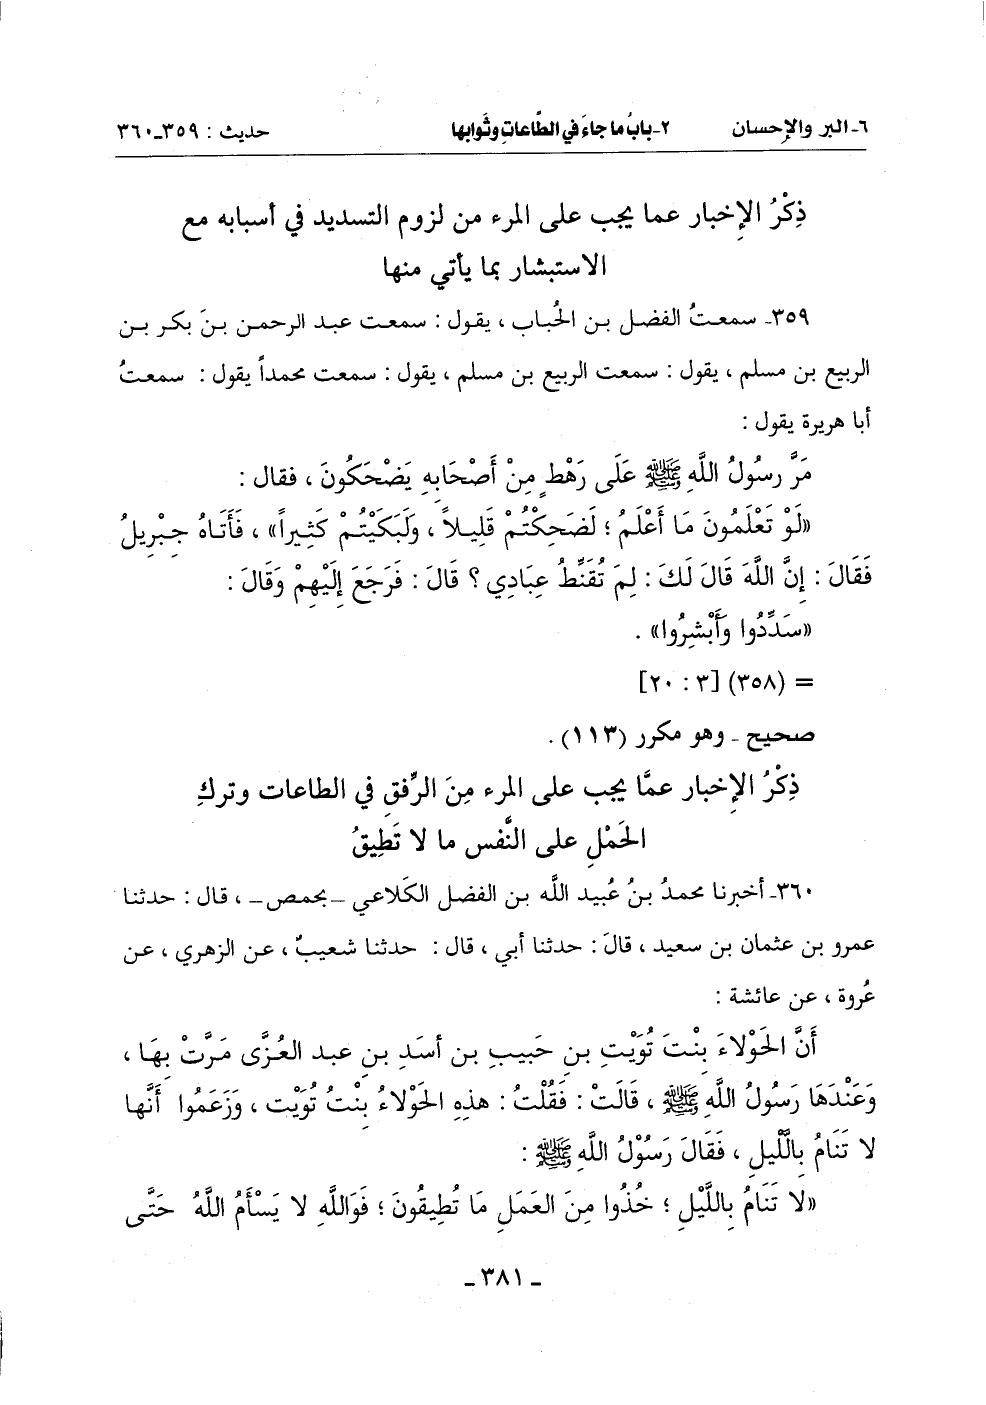 ٦-البر والإحسان ٢-بابُ ما جاءَ في الطَّاعاتِ وثَوابها حديث : ٣٥٩-٣٦٠
ذِكْرُ الإِخبار عما يجب على المرء من لزوم التسديد في أسبابه مع
الاستبشار بما يأتي منها
٣٥٩- سمعتُ الفضل بن الحُباب ، يقول : سمعت عبد الرحمن بنَ بكر بن
الربيع بن مسلم ، يقول : سمعت الربيع بن مسلم ، يقول : سمعت محمداً يقول : سمعتُ
أبا هريرة يقول :
مَرَّ رسولُ اللَّهِ ﷺ عَلَى رَهْطٍ مِنْ أَصْحَابِهِ يَضْحَكُونَ ، فقال :
«لَوْ تَعْلَمُونَ مَا أَعْلَمُ ؛ لَضَحِكْتُمْ قَلِيلاً ، وَلَبَكَيْتُمْ كَثِيراً» ، فَأَتَاهُ جِبْرِيلُ
فَقَالَ : إِنَّ اللَّهَ قَالَ لَكَ : لِمَ تُقَنِّطُ عِبَادِي ؟ قَالَ : فَرَجَعَ إِلَيْهِمْ وَقَالَ :
«سَدِّدُوا وَأَبْشِرُوا» .
= (٣٥٨) [٣ : ٢٠]
صحيح - وهو مكرر (١١٣) .
ذِكْرُ الإِخبار عمَّا يجب على المرء مِنَ الرِّفقِ في الطاعات وتركِ
الحَمْلِ على النَّفس ما لا تَطِيقُ
٣٦٠- أخبرنا محمدُ بنُ عُبيد اللَّه بن الفضل الكَلاعي -بحمص- ، قال : حدثنا
عمرو بن عثمان بن سعيد ، قالَ : حدثنا أبي ، قال : حدثنا شعيبٌ ، عن الزهري ، عن
عُروة ، عن عائشة :
أَنَّ الحَوْلاءَ بِنْتَ تُوَيْتِ بن حَبيبِ بن أسَدِ بنِ عبد العُزَّى مَرَّتْ بِهَا ،
وَعَنْدَهَا رَسُولُ اللَّهِ ﷺ ، قَالَتْ : فَقُلْتُ : هذهِ الحَوْلاءُ بِنْتُ تُوَيْت ، وَزَعَمُوا أَنَّها
لا تَنَامُ بِاللَّيلِ ، فَقَالَ رَسُوْلُ اللَّهِ ﷺ :
«لا تَنَامُ بِاللَّيْلِ ؛ خُذُوا مِنَ العَمَلِ مَا تُطِيقُونَ ؛ فَوَاللَّهِ لا يَسْأَمُ اللَّهُ حَتَّى
- ٣٨١ -